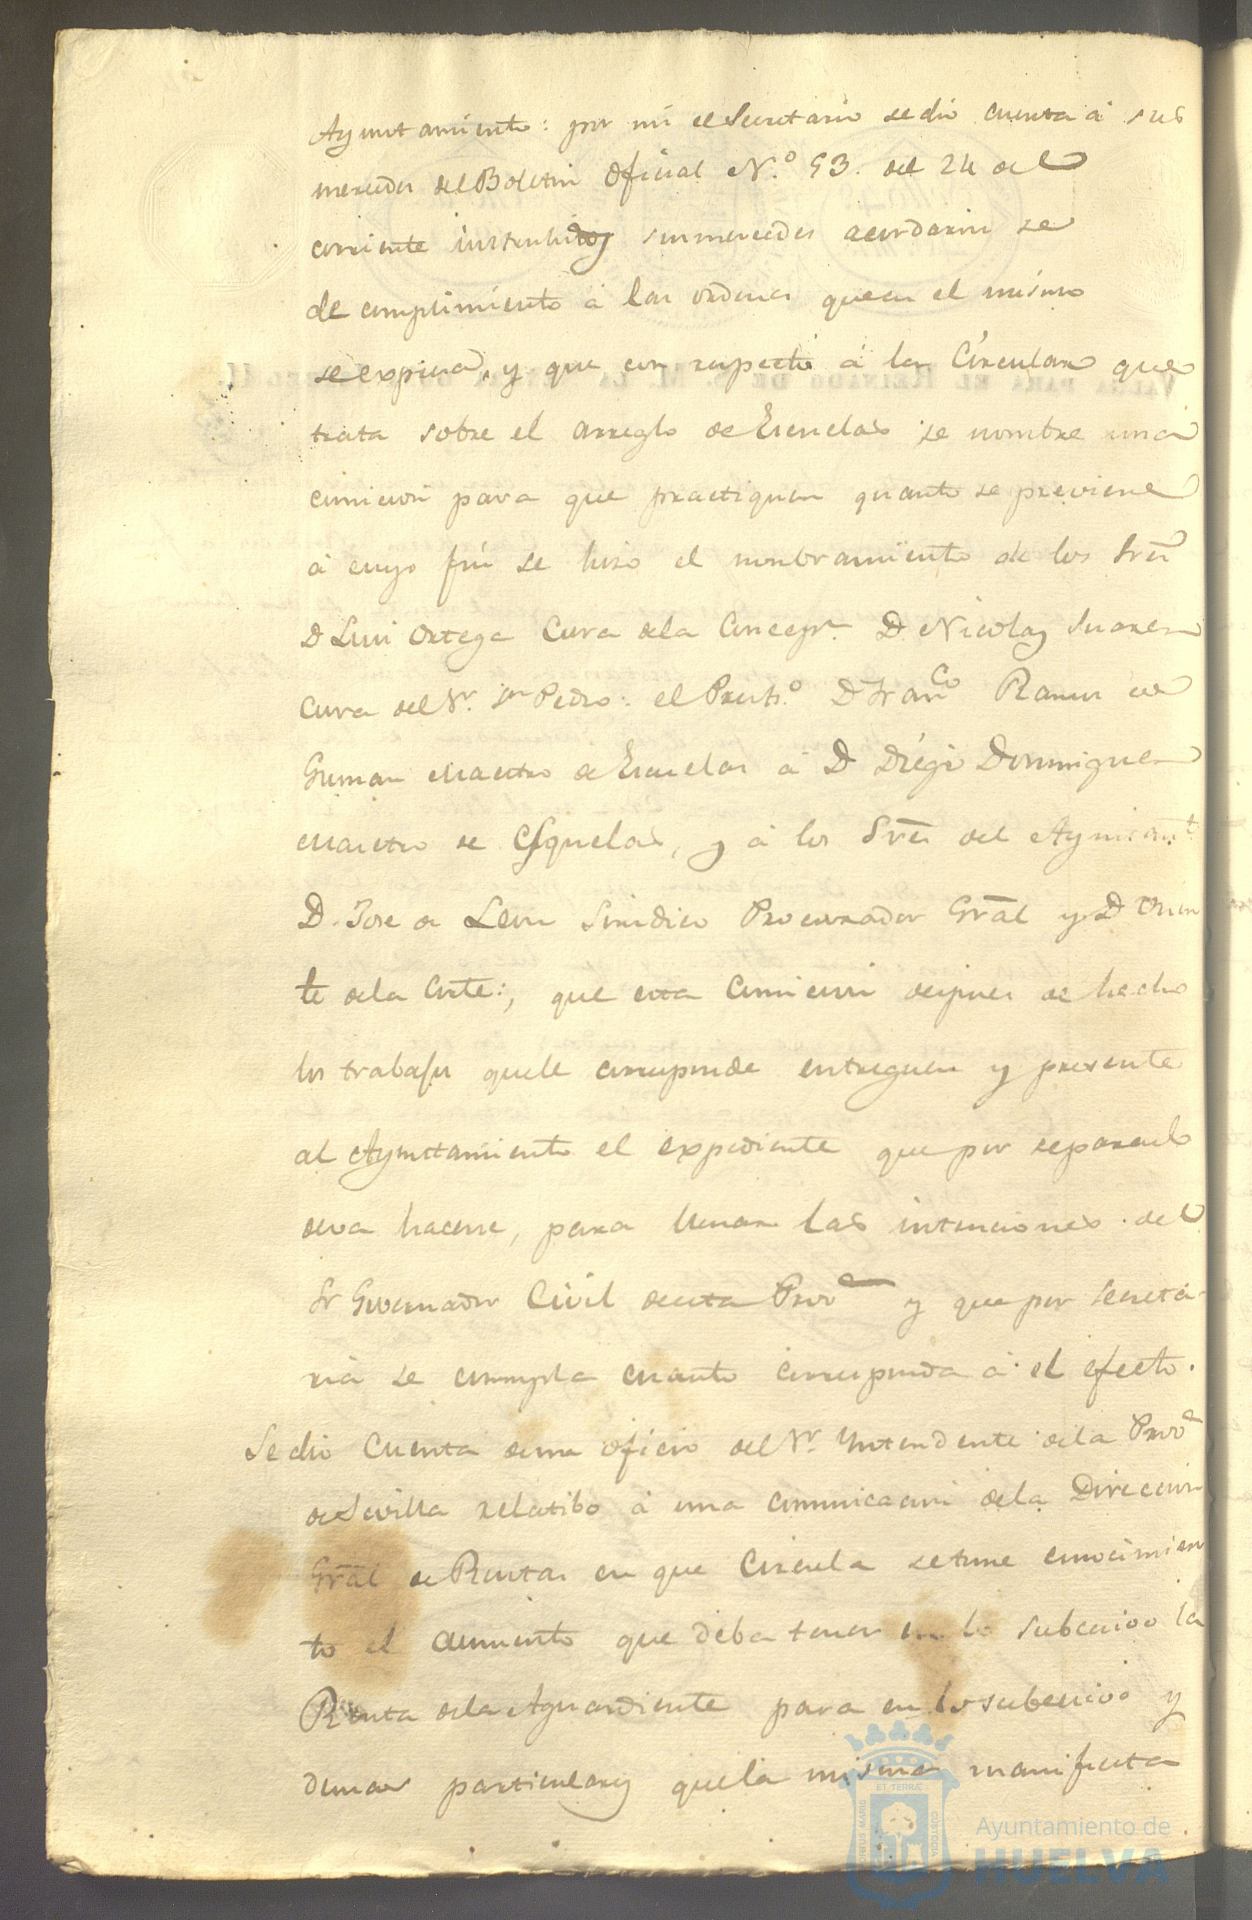 Ayuntamiento: por mi el Secretario se dio cuenta á sus
mercedes del Boletin Oficial N.º 93. del 24 del
corriente instruhidos sus mercedes acordaron se
de cumplimiento á las ordenes que en el mismo
se expresa, y que con respecto á la Circular que
trata sobre el arreglo de Escuelas se nombre una
comicion para que practiquen quanto se previene
á cuyo fin se hizo el nombramiento de los Sres
D Luis Ortega Cura de la Concepn. D Nicolas Suarez
Cura del Sr. Sn Pedro: el Presb.º D Franco Ramos de
Guzman Maestro de Escuelas á D Diego Dominguez
Maestro de Esquelas, y á los Sres del Ayuntamt.
D. Jose de Leon Sindico Procurador Gral y D Vicen
te de la Corte:, que esta Comicion despues de hecho
los trabajos que le corresponde entreguen y presente
al Ayuntamiento el expediente que por separado
deva hacerse, para llenar las intenciones del
Sr Governador Civil de esta Prova y que por secreta-
ria se cumpla cuanto corresponda á el efecto.
Se dio Cuenta de un oficio del Sr. Yntendente de la Prova
de Sevilla relatibo á una comunicacion de la Direccion
Gral de Rentas en que Circula se tome conocimien
to el aumento que deba tener en lo subcecivo la
Renta de la Aguardiente para en lo subcecivo y
demas particulares que la misma manifiesta
Ayuntamiento de
HUELVA